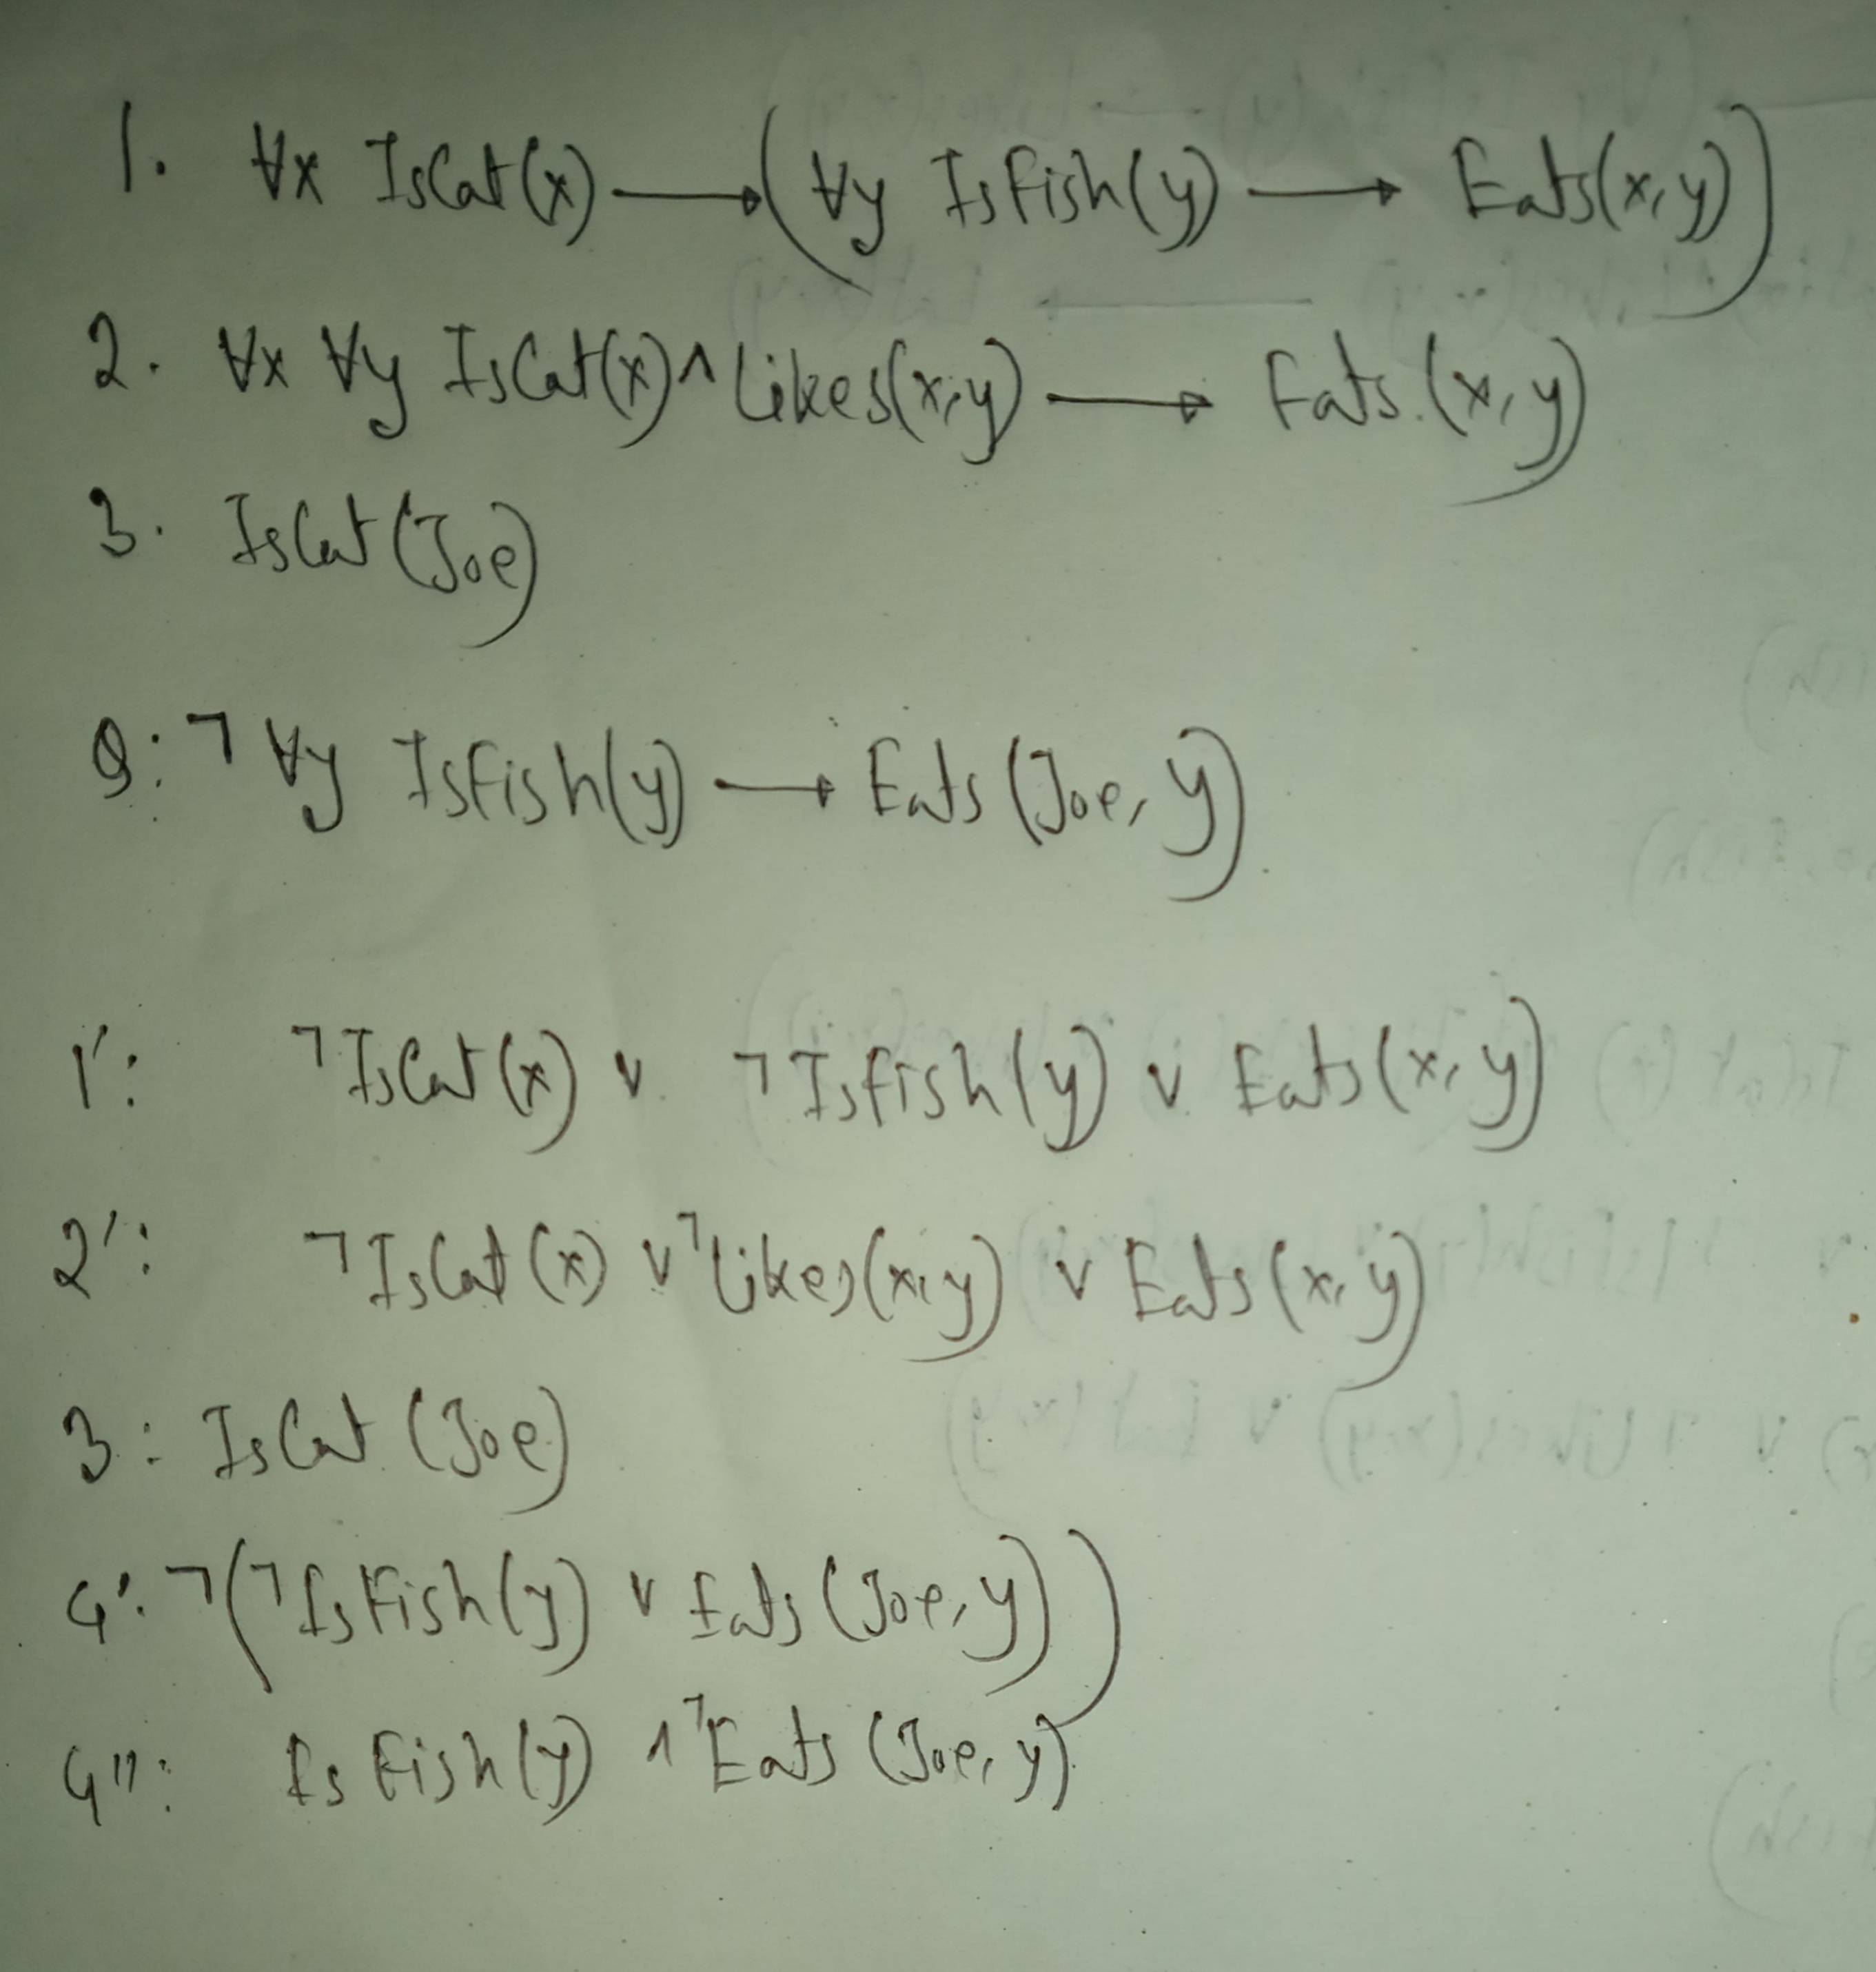 1. ∀x IsCat(x) → (∀y IsFish(y) → Eats(x,y))
2. ∀x ∀y IsCat(x) ∧ Likes(x,y) → Eats(x,y)
3. IsCat(Joe)
Q: ¬ ∀y IsFish(y) → Eats(Joe, y)
1': ¬IsCat(x) ∨ ¬IsFish(y) ∨ Eats(x,y)
2': ¬IsCat(x) ∨ ¬Likes(x,y) ∨ Eats(x,y)
3: IsCat(Joe)
4': ¬(¬IsFish(y) ∨ Eats(Joe,y))
4'': IsFish(y) ∧ ¬Eats(Joe,y)